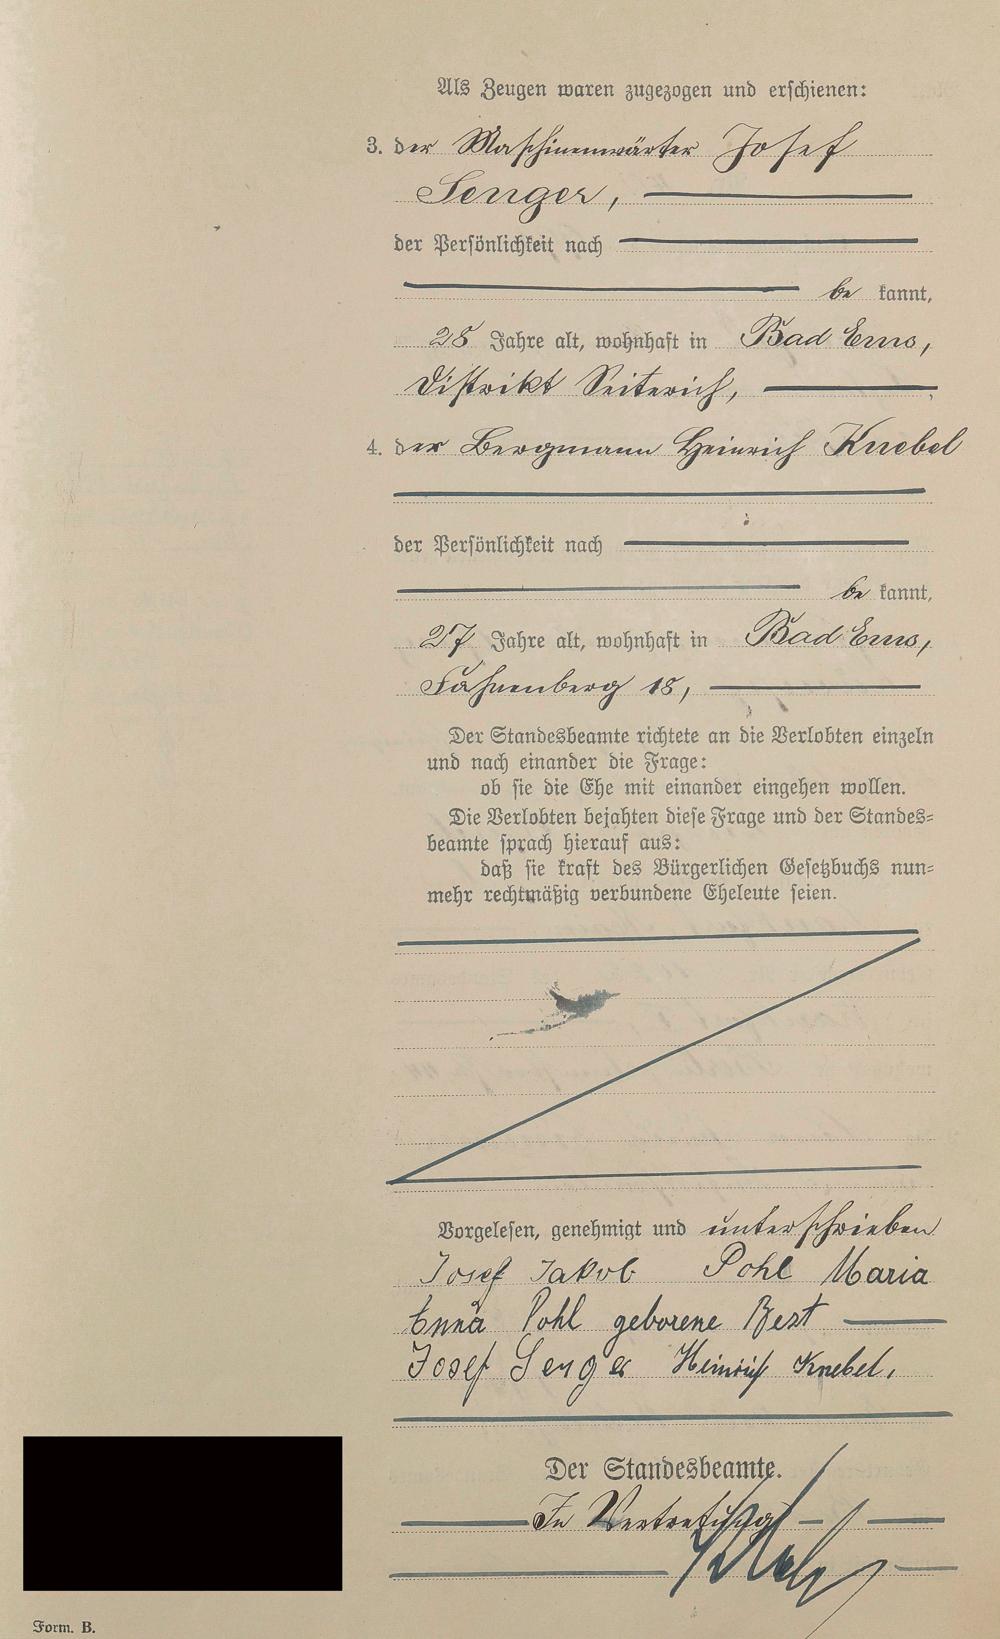 Als Zeugen waren zugezogen und erschienen:
3. der Maschinenwärter Josef
Senger,
der Persönlichkeit nach
be kannt,
28 Jahre alt, wohnhaft in Bad Ems,
Distrikt Seiterich,
4. der Bergmann Heinrich Knebel
der Persönlichkeit nach
be kannt,
27 Jahre alt, wohnhaft in Bad Ems,
Fahnenberg 18,
Der Standesbeamte richtete an die Verlobten einzeln
und nach einander die Frage:
ob sie die Ehe mit einander eingehen wollen.
Die Verlobten bejahten diese Frage und der Standes=
beamte sprach hierauf aus:
daß sie kraft des Bürgerlichen Gesetzbuchs nun=
mehr rechtmäßig verbundene Eheleute seien.
Vorgelesen, genehmigt und unterschrieben
Josef Jakob Pohl Maria
Anna Pohl geborene Best
Josef Senger Heinrich Knebel.
Der Standesbeamte.
In Vertretung
Form. B.